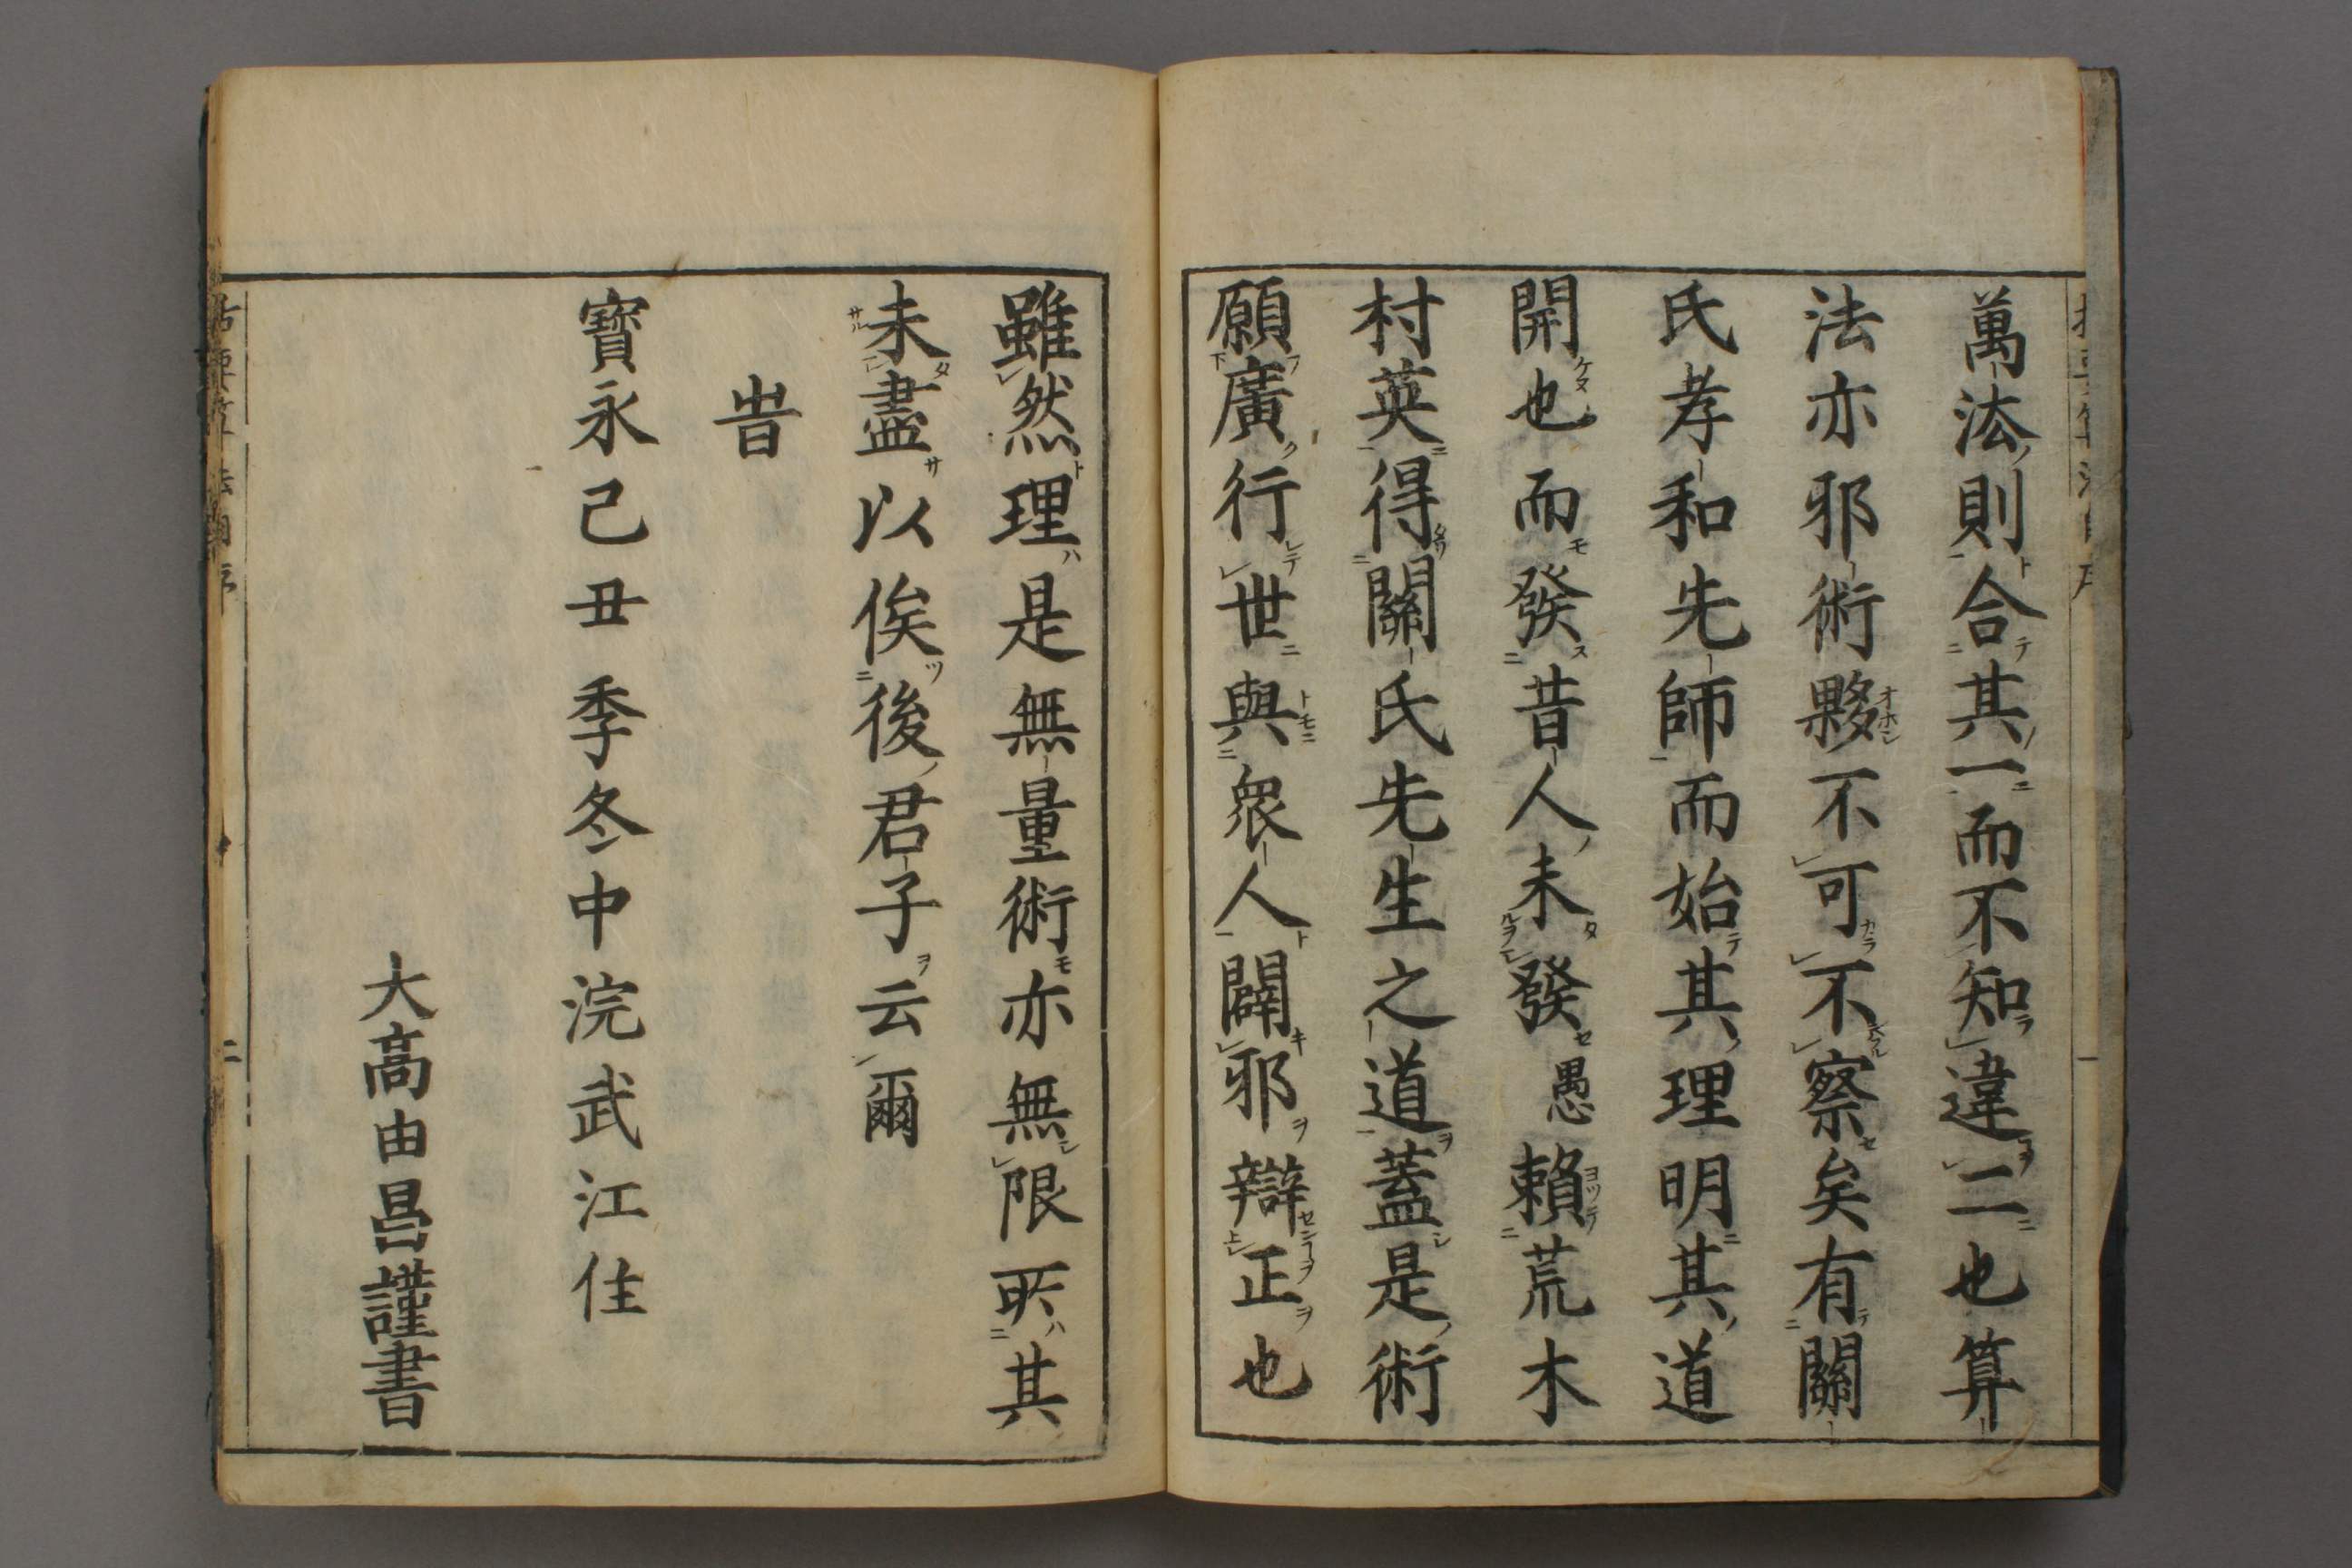 萬法則合其一而不知違二也算
法亦邪術夥不可不察矣有關
氏孝和先師而始其理明其道
開也而發昔人未發愚賴荒木
村英得關氏先生之道蓋是術
願廣行世與衆人闢邪辯正也
雖然理是無量術亦無限所其
未盡以俟後君子云爾
旹
寶永己丑季冬中浣武江住
大高由昌謹書
括要算法自序
二